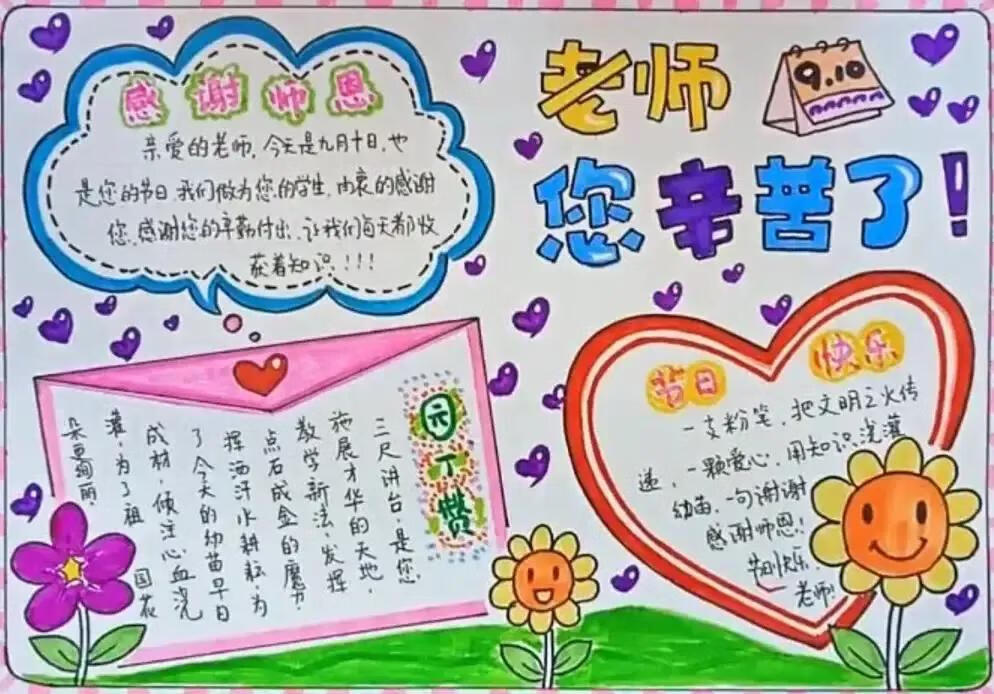 老师
9.10
您辛苦了!
感谢师恩
亲爱的老师，今天是九月十日，也
是您的节日，我们做为您的学生，内衷的感谢
您，感谢您的辛勤付出，让我们每天都收
获着知识!!!
园丁赞
三尺讲台，是您
施展才华的天地，
教学新法，发挥
点石成金的魔力
挥洒汗水耕耘，为
了今天的幼苗早日
成材，倾注心血浇
灌，为了祖国花
朵更绚丽.
节日快乐
一支粉笔，把文明之火传
递，一颗爱心，用知识浇灌
幼苗，一句谢谢
感谢师恩!
节日快乐，
老师!